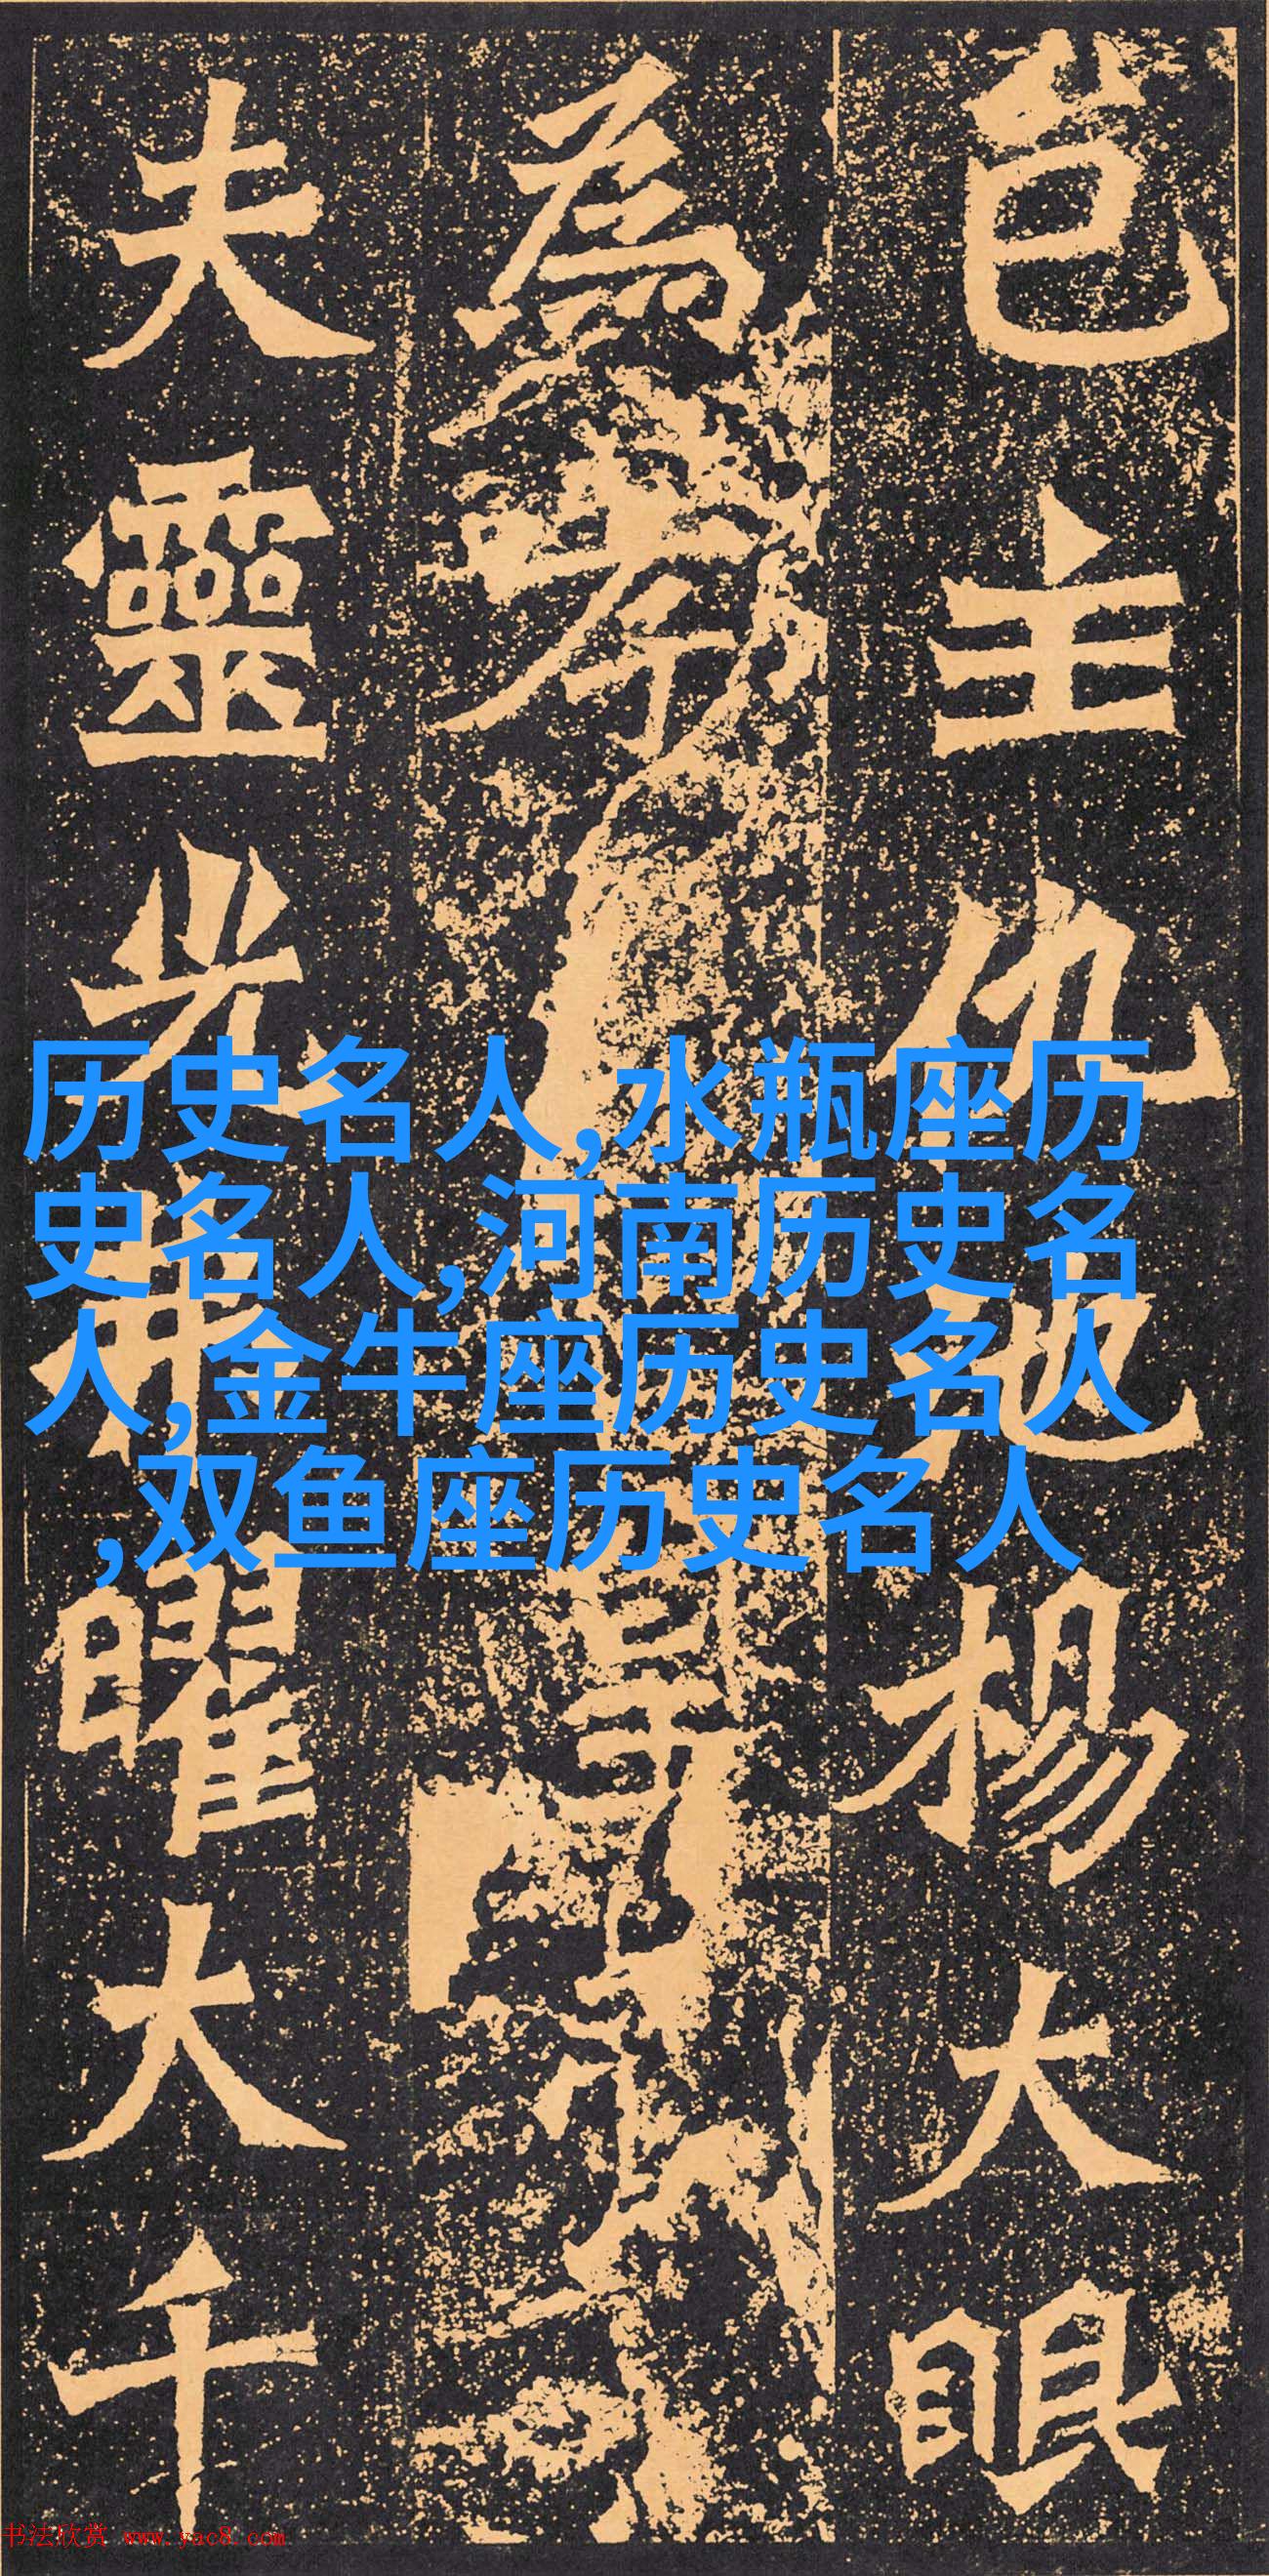 邑主仇池楊大眼
為孝皇
夫靈光弗曜大千
历史名人,水瓶座历
史名人,河南历史名
人,金牛座历史名人
,双鱼座历史名人
书法欣赏 www.yac8.com